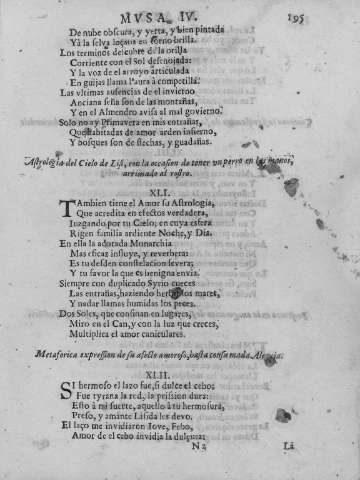 MVSA IV. 195
De nube obscura, y yerta, y bien pintada
Ya la selva loçana en torno brilla.
Los terminos descubre de la orilla
Corriente con el Sol desenojada:
Y la voz de el arroyo articulada
En guijas llama l'aura a competilla.
Las vltimas ausencias de el invierno
Anciana seña son de las montañas,
Y en el Almendro avisa al mal govierno.
Solo no ay Primavera en mis entrañas,
Que habitadas de amor arden infierno,
Y bosques son de flechas, y guadañas.
Astrologia del Cielo de Lisi, con la occasion de tener un perro en las manos,
arrimado al rostro.
XLI.
TAmbien tiene el Amor su Astrologia,
Que acredita en efectos verdadera,
Iuzgando por tu Cielo; en cuya esfera
Rigen familia ardiente Noche, y Dia.
En ella la adorada Monarchia
Mas eficaz influye, y reverbera:
Es tu desden constelacion severa;
Y tu favor la que es benigna envia.
Siempre con duplicado Syrio cueces
Las entrañas, haziendo hervir los mares,
Y nadar llamas humidas los peces.
Dos Soles, que confinan en lugares,
Miro en el Can, y con la luz que creces,
Multiplica el amor caniculares.
Metaforica expression de su afecto amoroso, hasta consumada Alegoria.
XLII.
SI hermoso el lazo fue, si dulce el cebo;
Fue tyrana la red, la prission dura:
Esto à mi suerte, aquello à tu hermosura,
Preso, y amante Lisida les devo.
El laço me invidiaron Iove, Febo,
Amor de el cebo invidia la dulçura:
N 2 La